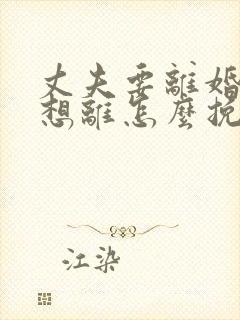 丈夫要離婚
想離怎麼挽
江染